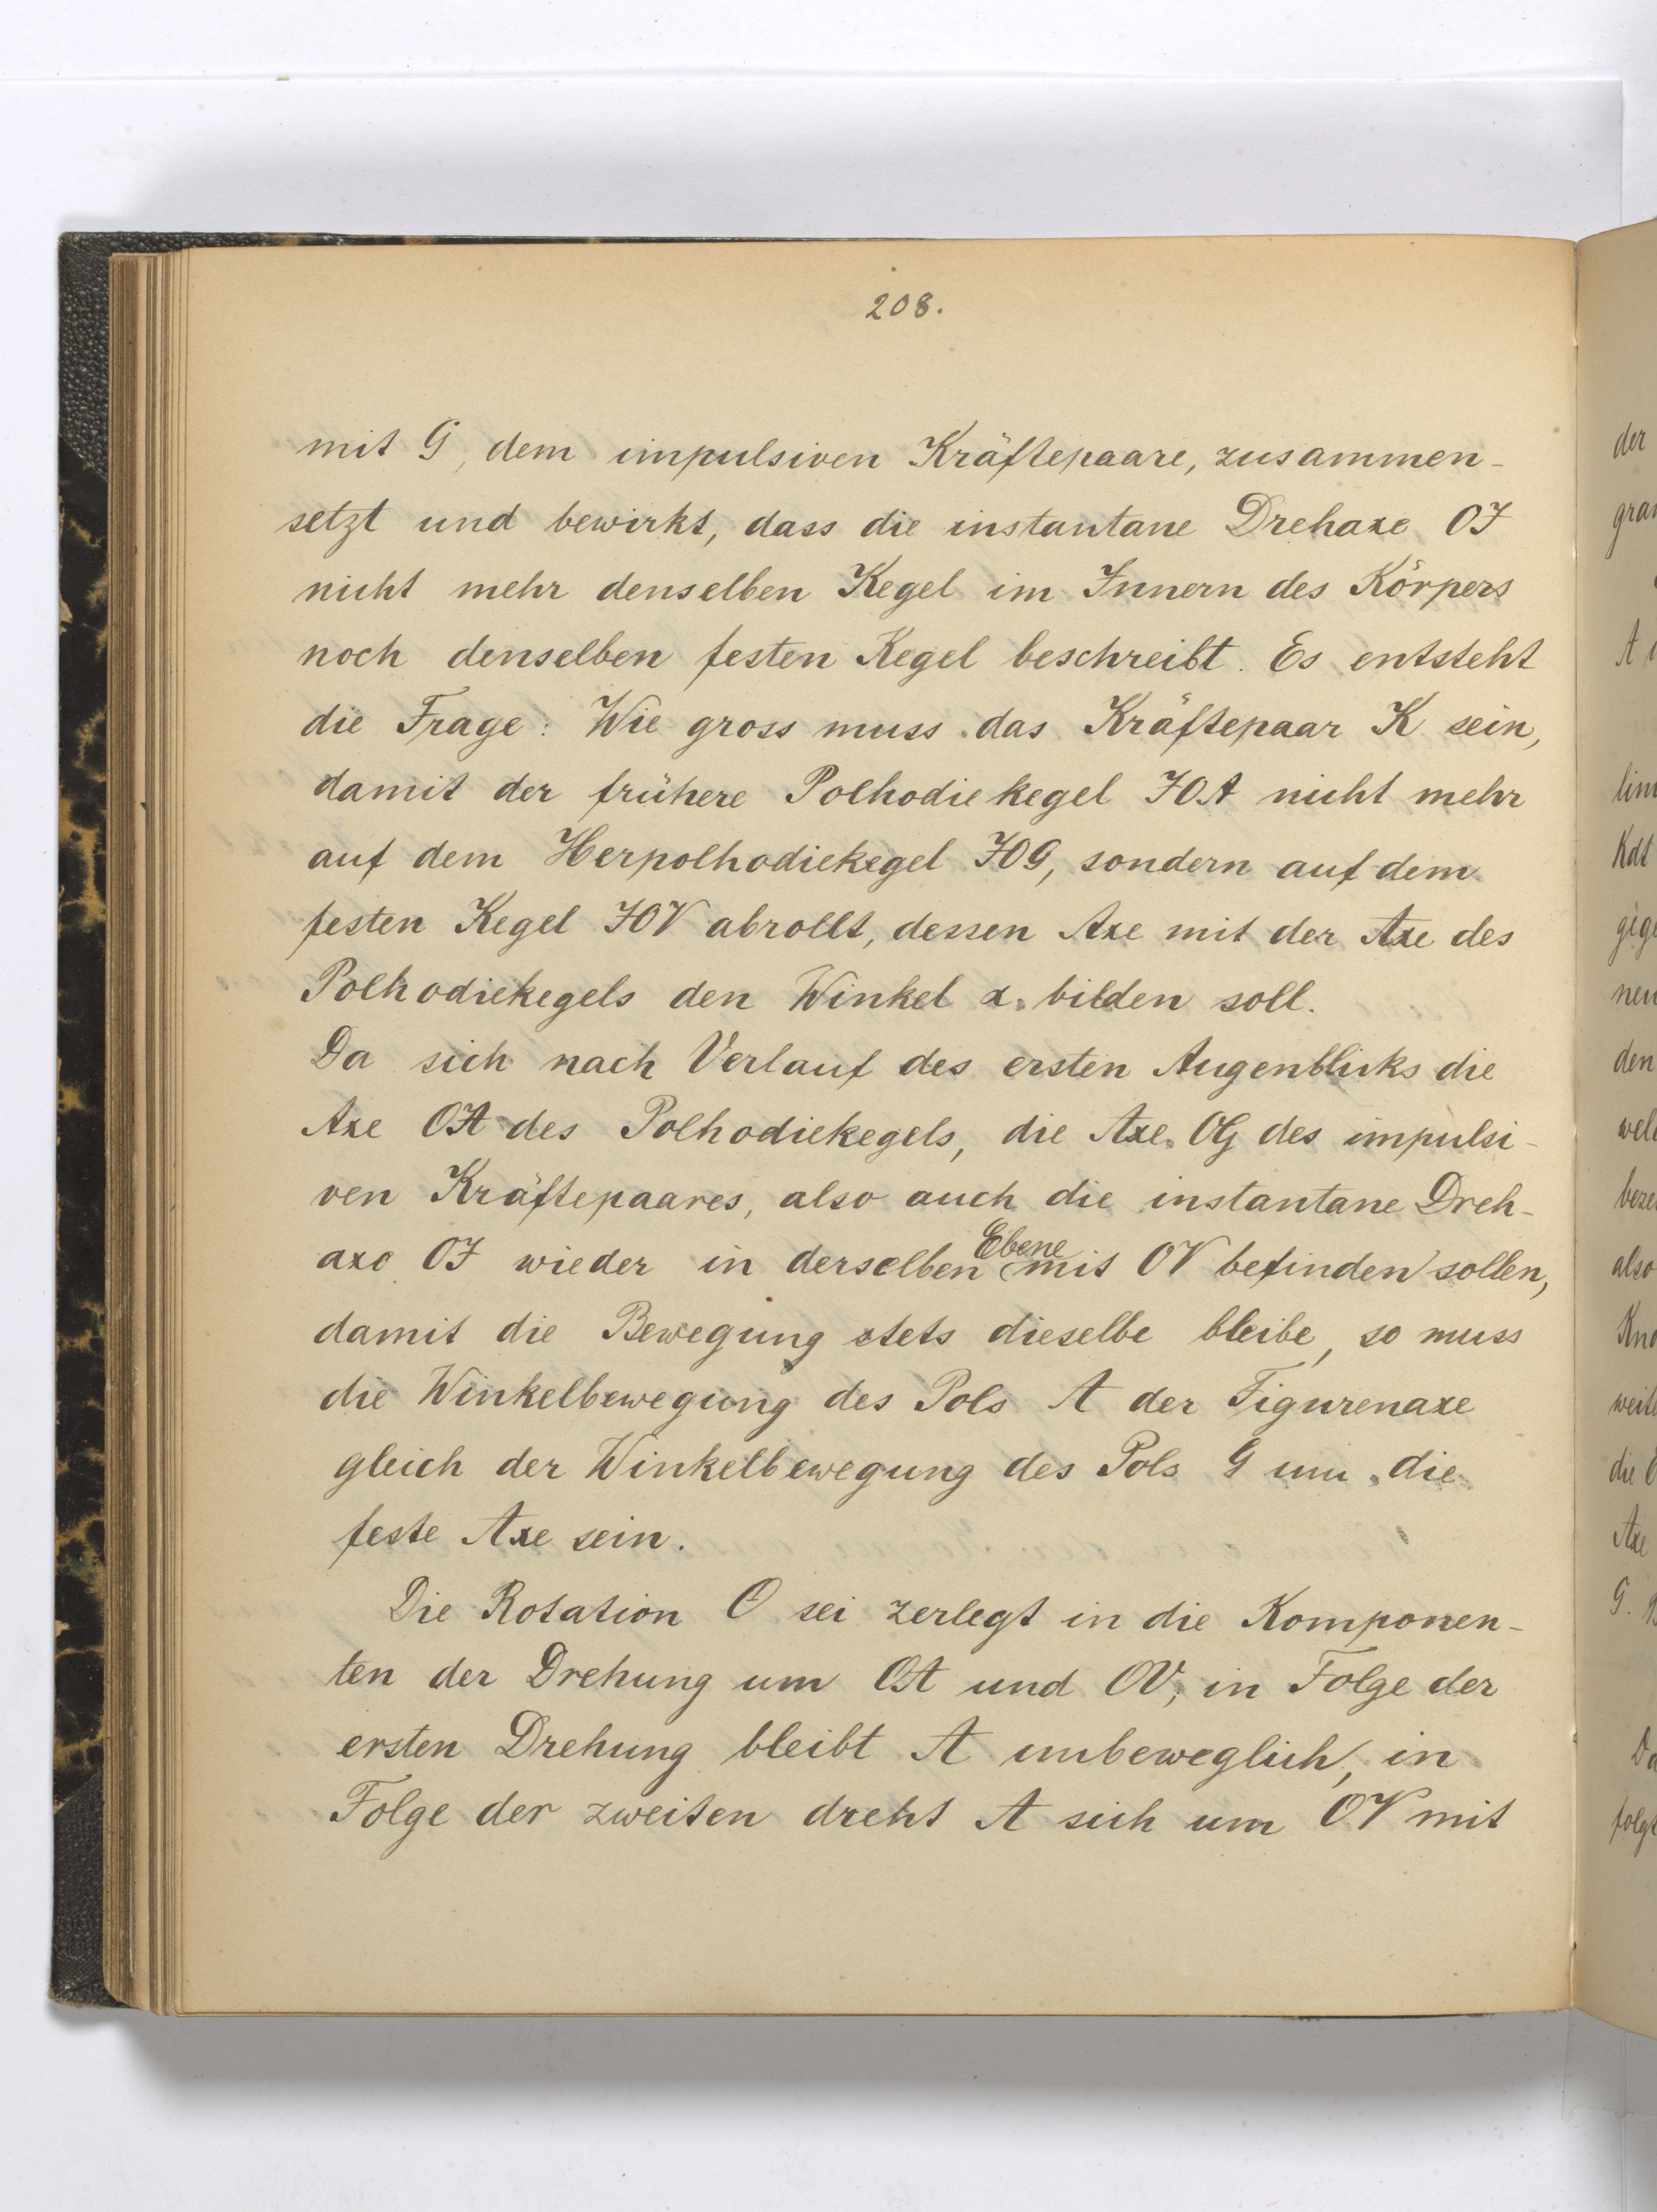 208.
mit G, dem impulsiven Kräftepaare, zusammen-
setzt und bewirkt, dass die instantane Drehaxe OJ
nicht mehr denselben Kegel im Innern des Körpers
noch denselben festen Kegel beschreibt. Es entsteht
die Frage: Wie gross muss das Kräftepaar K sein,
damit der frühere Polhodiekegel JOA nicht mehr
auf dem Herpolhodiekegel JOG, sondern auf dem
festen Kegel JOV abrollt, dessen Axe mit der Axe des
Polhodiekegels den Winkel α bilden soll.
Da sich nach Verlauf des ersten Augenblicks die
Axe OA des Polhodiekegels, die Axe OG des impulsi-
ven Kräftepaares, also auch die instantane Dreh-
axe OJ wieder in derselben Ebene mit OV befinden sollen,
damit die Bewegung stets dieselbe bleibe, so muss
die Winkelbewegung des Pols A der Figurenaxe
gleich der Winkelbewegung des Pols G um die
feste Axe sein.
Die Rotation O sei zerlegt in die Komponen-
ten der Drehung um OA und OV; in Folge der
ersten Drehung bleibt A unbeweglich, in
Folge der zweiten dreht A sich um OV mit
der
gran
A
lim
Kdt
gige
neu
den
wel
beze
also
Kno
weite
die O
Axe
G.
Da
folgt